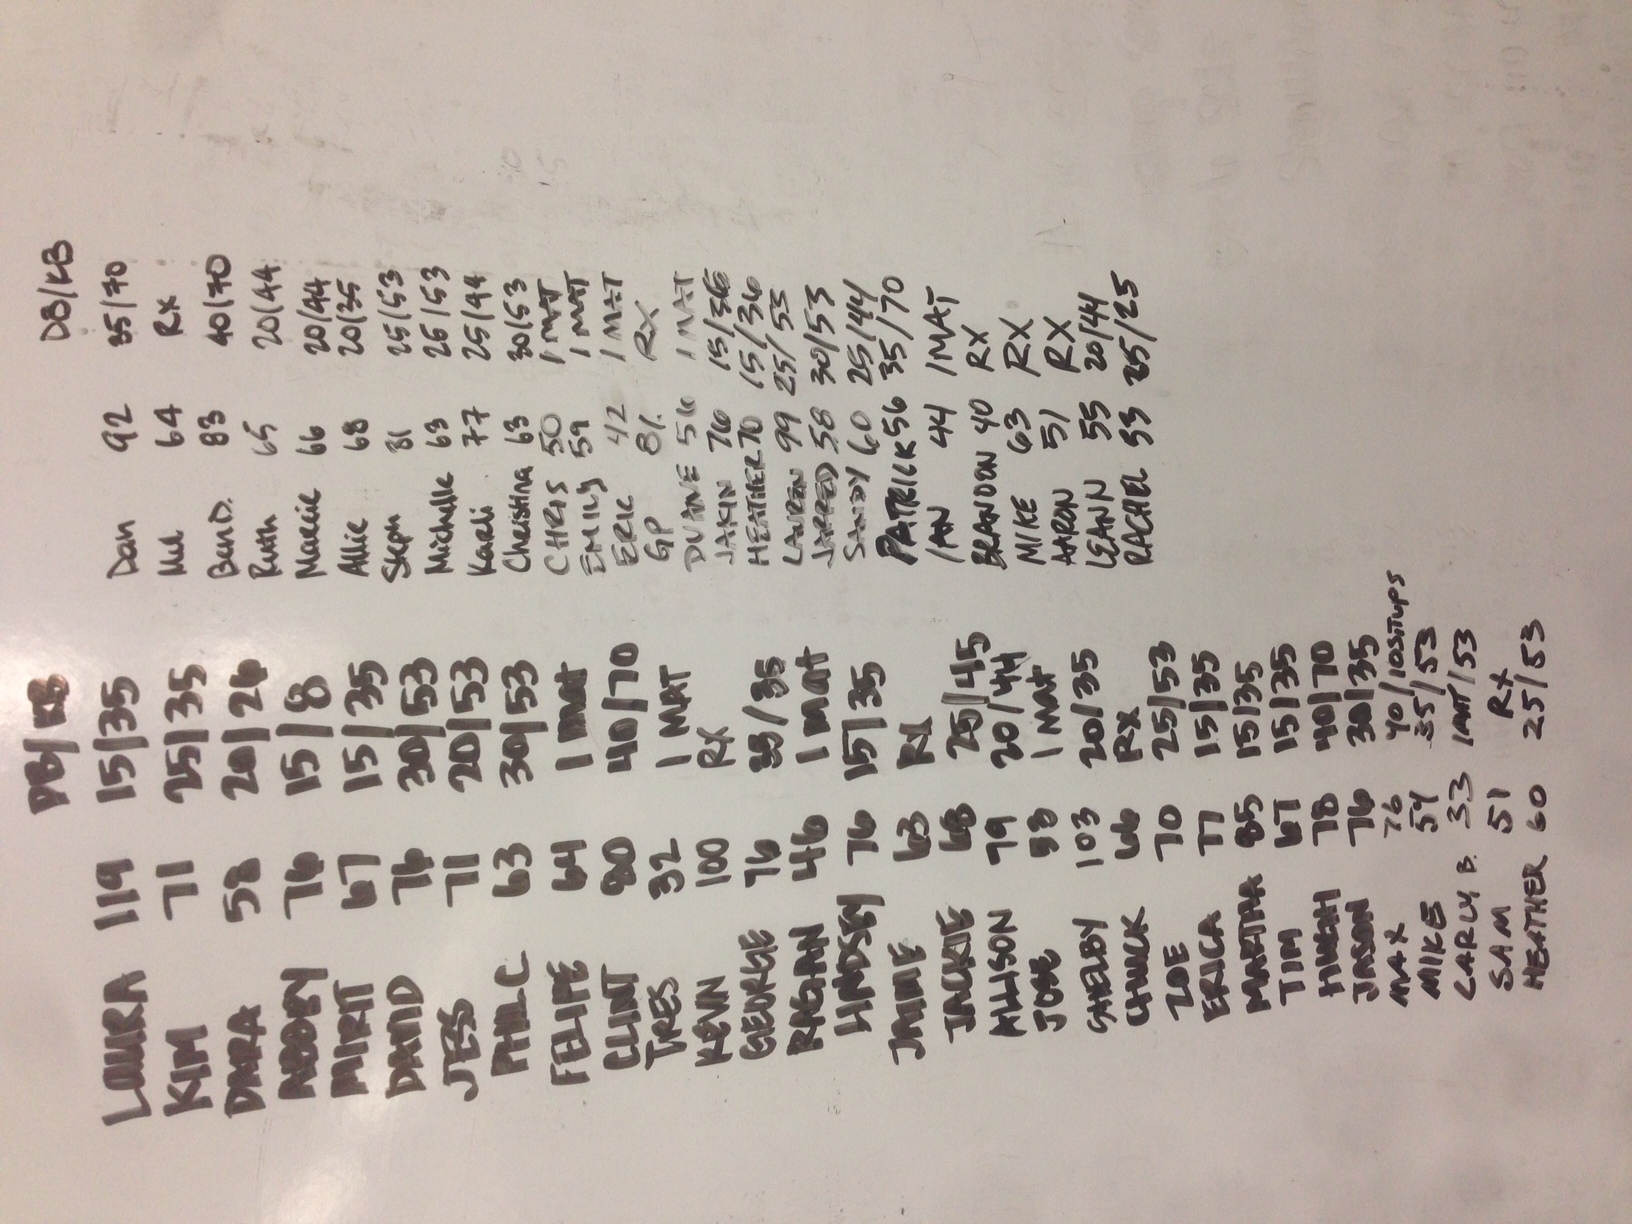 DB/KB
LAURA 119 15/35
KIM 71 25/35
DARA 58 20/26
ABBEY 76 15/8
MIRT 67 15/35
DAVID 76 30/53
JES 71 20/53
PHIL C 63 30/53
FELIPE 64 1 mat
CLINT 80 40/70
TRES 32 1 MAT
KEVIN 100 RX
GEORGE 76 35/35
RAGAN 46 1 mat
LINDSEY 76 15/35
JAIMIE 63 RX
JACKIE 68 25/45
ALLISON 79 20/44
JOSE 58 1 mat
SHELBY 103 20/35
CHUCK 66 RX
ZOE 70 25/53
ERICA 77 15/35
MARTHA 85 15/35
TIM 67 15/35
HUGH 78 40/70
JASON 76 30/35
MAX 76 40/10 SITUPS
MIKE 54 35/53
CARLY B. 33 1MAT/53
SAM 51 RX
HEATHER 60 25/53
DB/KB
Dan 92 35/70
Mel 64 Rx
Ben D. 83 40/70
Ruth 65 20/44
Marcie 66 20/44
Allie 68 20/35
Steph 81 25/53
Michelle 63 25/53
Kardi 77 25/44
Christina 63 30/53
CHRIS 50 1 MAT
EMILY 59 1 MAT
ERIC 42 1 MAT
GP 81. RX
DUANE 56 1 MAT
JAKIN 76 15/36
HEATHER 70 15/36
LAUREN 99 25/53
JARRED 58 30/53
SANDY 60 25/44
PATRICK 56 35/70
IAN 44 1 MAT
BRANDON 40 RX
MIKE 63 RX
AARON 51 RX
LEANN 55 20/44
RACHEL 53 25/25